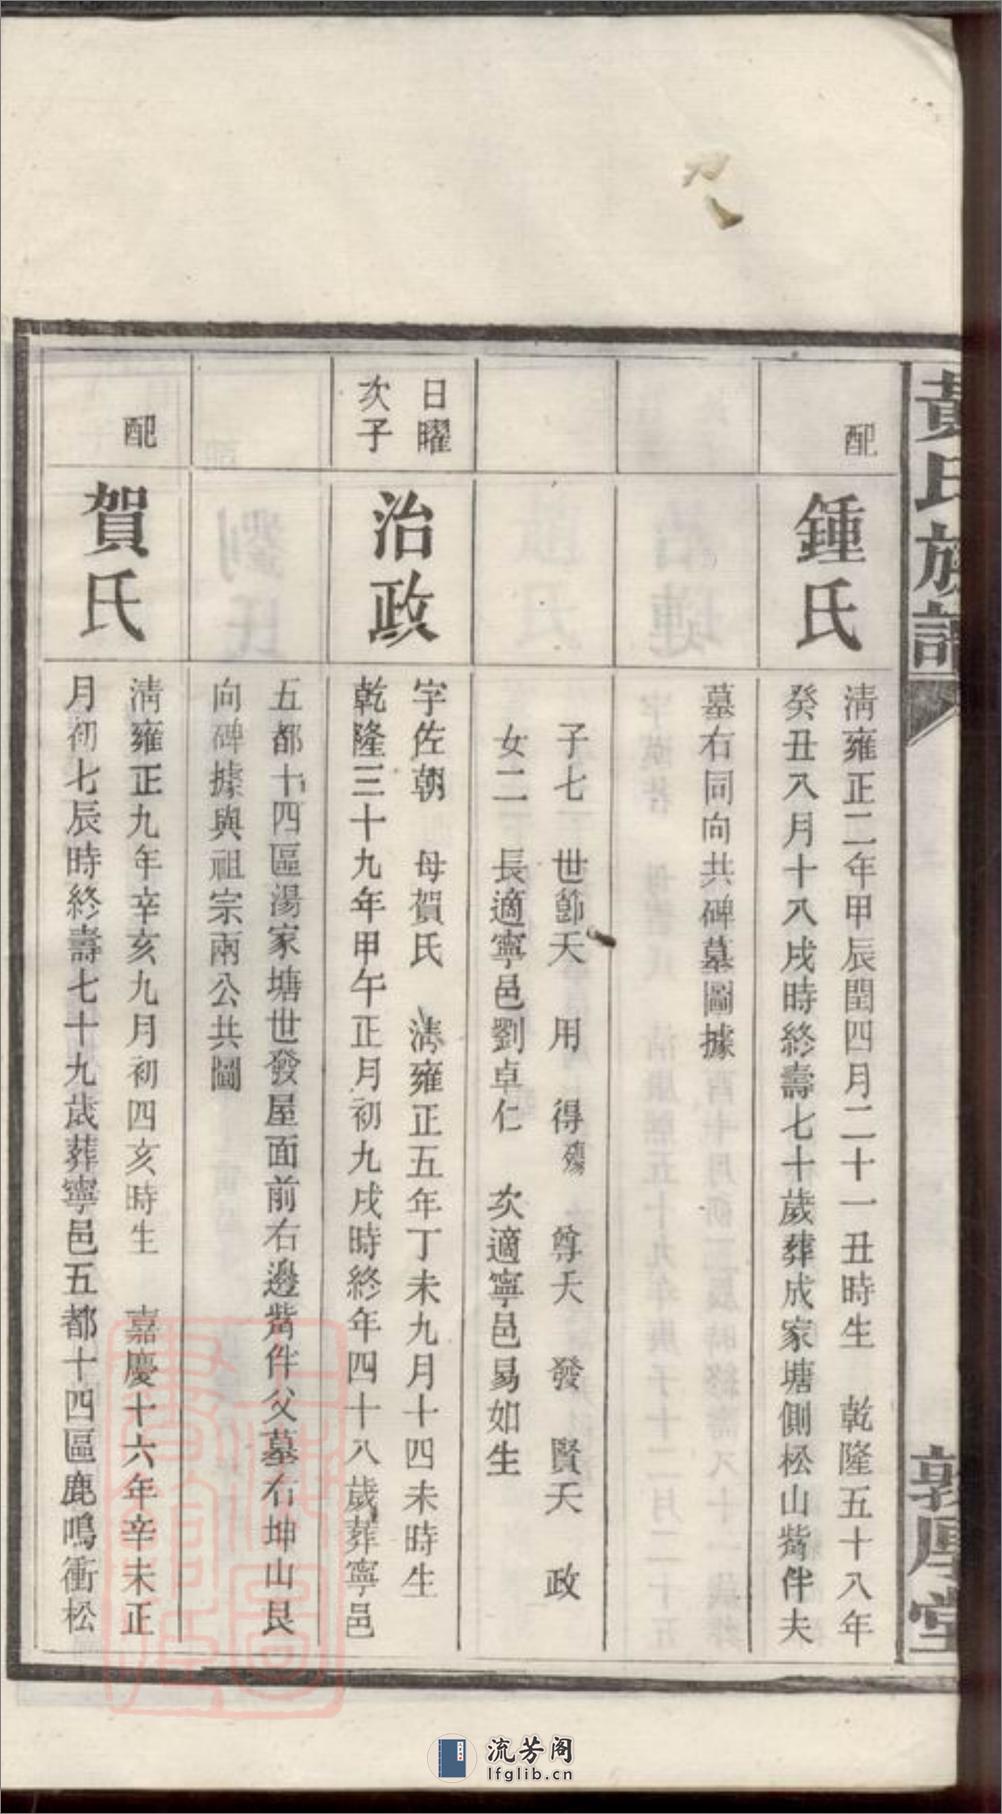 黃氏族譜
敦厚堂
配
鍾氏
清雍正二年甲辰閏四月二十一丑時生　乾隆五十八年
癸丑八月十八戌時終壽七十歲葬成家塘側松山觜伴夫
墓右同向共碑墓圖據
子七　世節夭　用　得殤　尊夭　發　賢夭　政
女二　長適寧邑劉卓仁　次適寧邑易如生
日曜
次子
治政
字佐朝　母賀氏　清雍正五年丁未九月十四未時生
乾隆三十九年甲午正月初九戌時終年四十八歲葬寧邑
五都十四區湯家塘世發屋面前右邊觜伴父墓右坤山艮
向碑據與祖宗兩公共圖
配
賀氏
清雍正九年辛亥九月初四亥時生　嘉慶十六年辛未正
月初七辰時終壽七十九歲葬寧邑五都十四區鹿鳴衝松
流芳阁
lfglib.cn